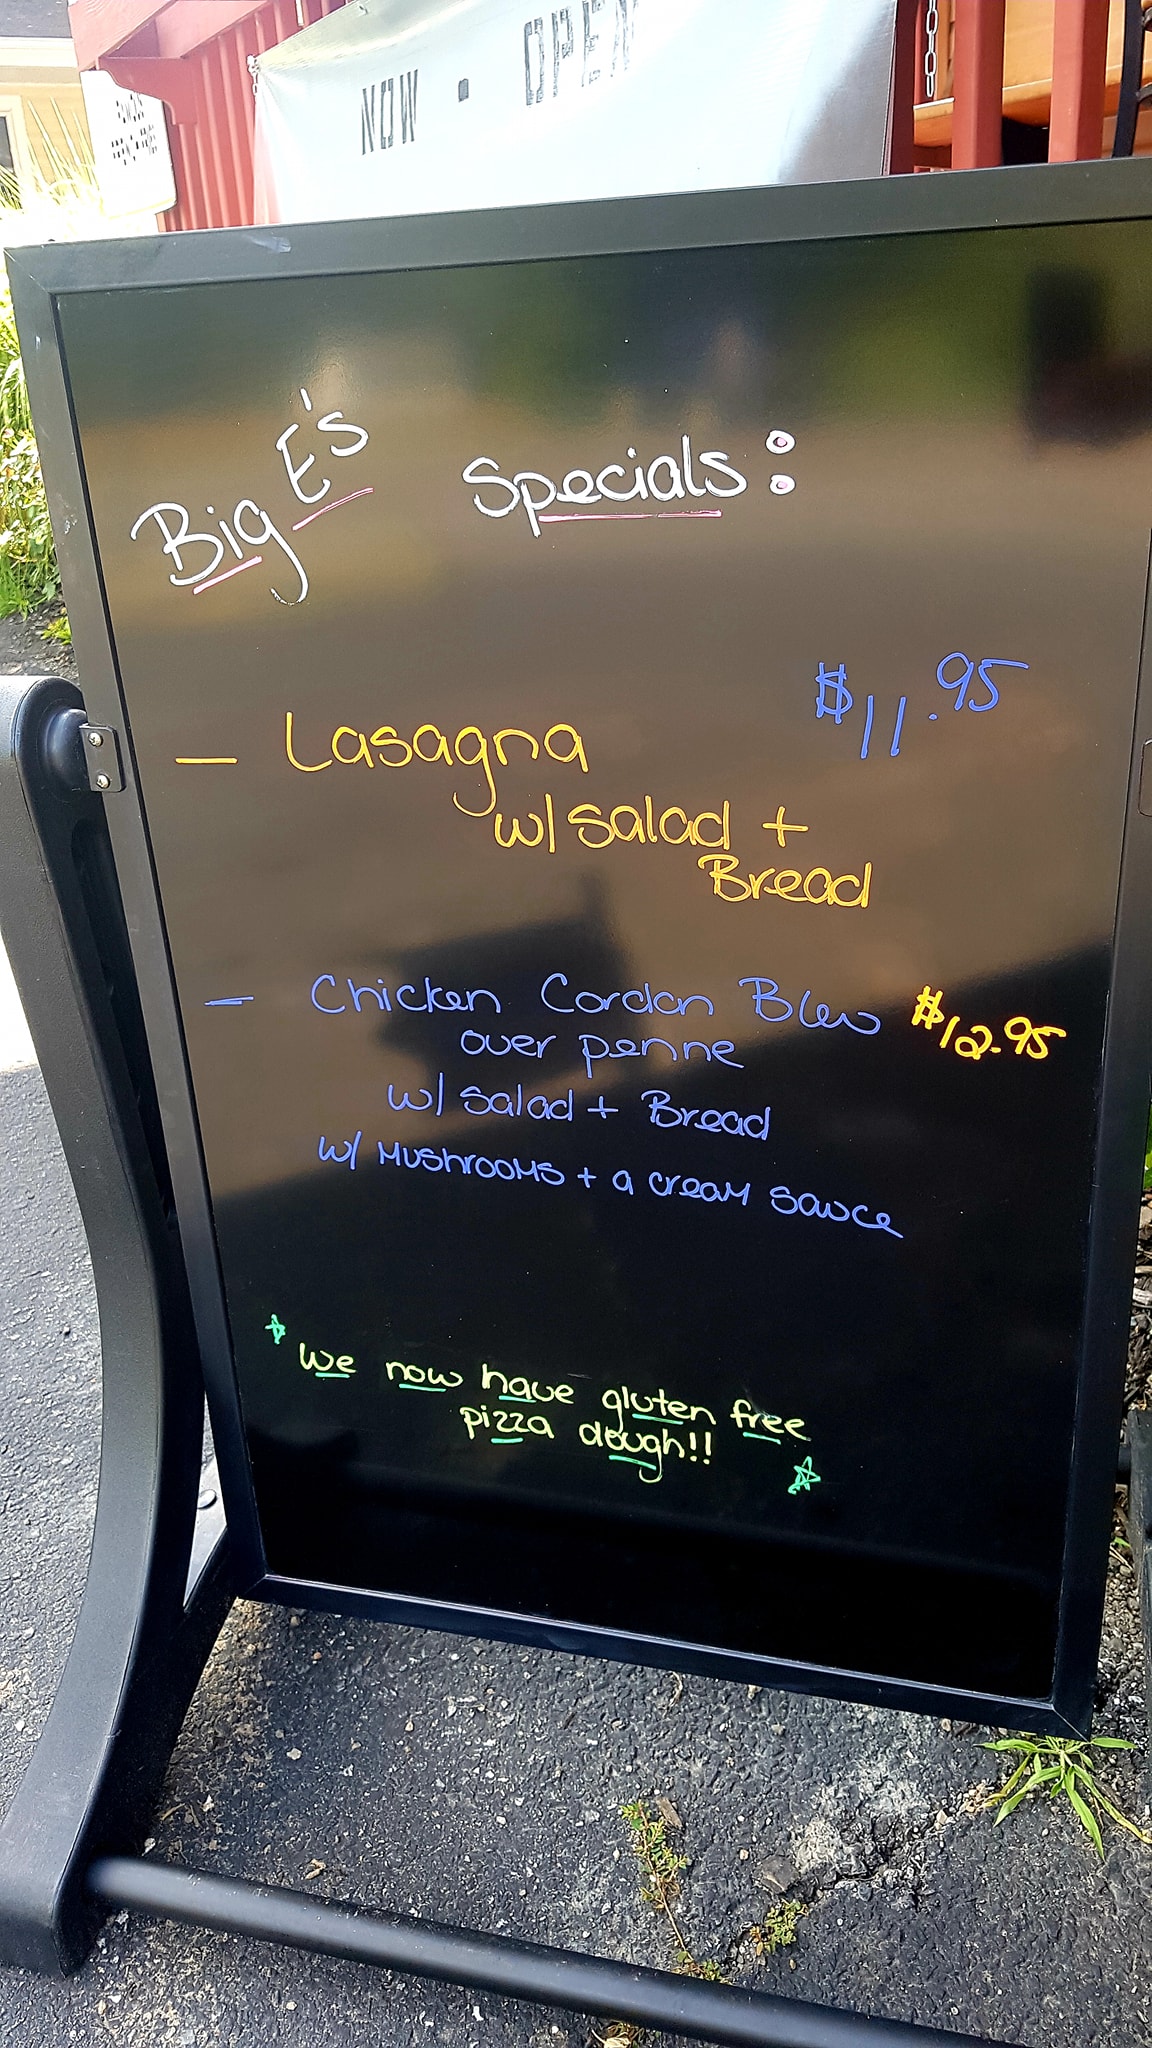 NOW - OPEN
Big E's Specials:
— Lasagna $11.95
w/ salad +
Bread
— Chicken Cordon Bleu $12.95
over penne
w/ salad + Bread
w/ MUSHROOMS + a cream sauce
☆ we now have gluten free
pizza dough!! ☆